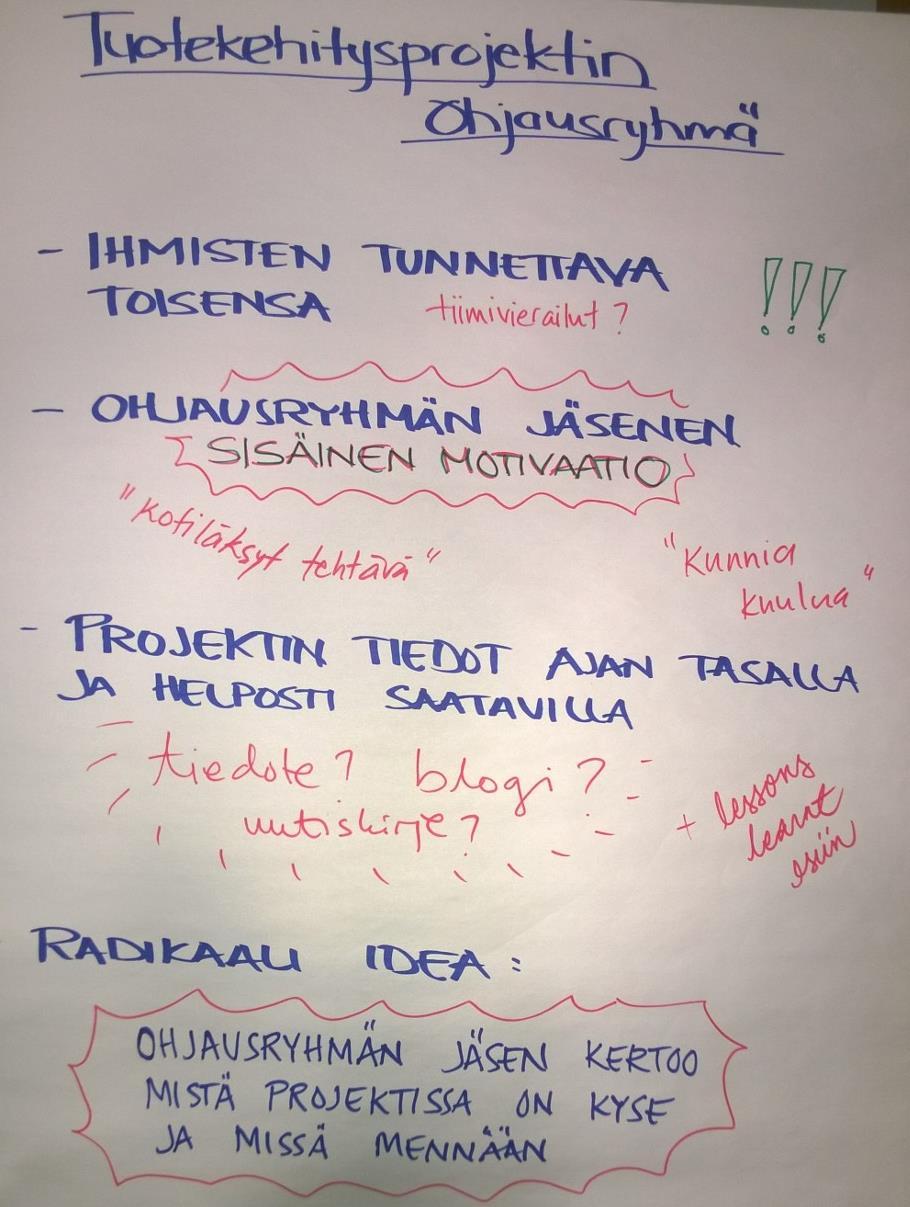 Tuotekehitysprojektin
Ohjausryhmä
- IHMISTEN TUNNETTAVA
TOISENSA
tiimivierailut ?
!!!
- OHJAUSRYHMÄN JÄSENEN
SISÄINEN MOTIVAATIO
"kotiläksyt tehtävä"
"Kunnia
kuulua"
- PROJEKTIN TIEDOT AJAN TASALLA
JA HELPOSTI SAATAVILLA
tiedote? blogi?
uutiskirje?
+ lessons
learnt
esiin
RADIKAALI IDEA :
OHJAUSRYHMÄN JÄSEN KERTOO
MISTÄ PROJEKTISSA ON KYSE
JA MISSÄ MENNÄÄN